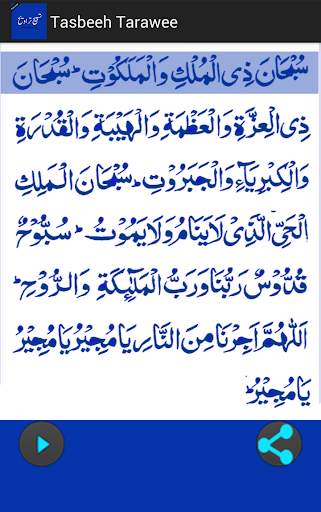 Tasbeeh Tarawee
سُبْحَانَ ذِی الْمُلْكِ وَالْمَلَكُوْتِ ۔ سُبْحَانَ
ذِی الْعِزَّةِ وَالْعَظَمَةِ وَالْهَيْبَةِ وَالْقُدْرَةِ
وَالْكِبْرِيَآءِ وَالْجَبَرُوْتِ ۔ سُبْحَانَ الْمَلِكِ
الْحَیِّ الَّذِیْ لَا يَنَامُ وَلَا يَمُوْتُ ۔ سُبُّوْحٌ
قُدُّوْسٌ رَبُّنَا وَرَبُّ الْمَلٰٓئِكَةِ وَالرُّوْحِ ۔
اَللّٰهُمَّ اَجِرْنَا مِنَ النَّارِ يَا مُجِيْرُ يَا مُجِيْرُ
يَا مُجِيْرُ ۔